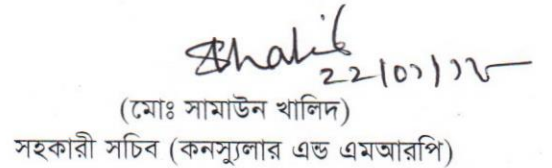 Khalid
(মোঃ সামাউন খালিদ)
সহকারী সচিব (কনস্যুলার এন্ড এমআরপি)